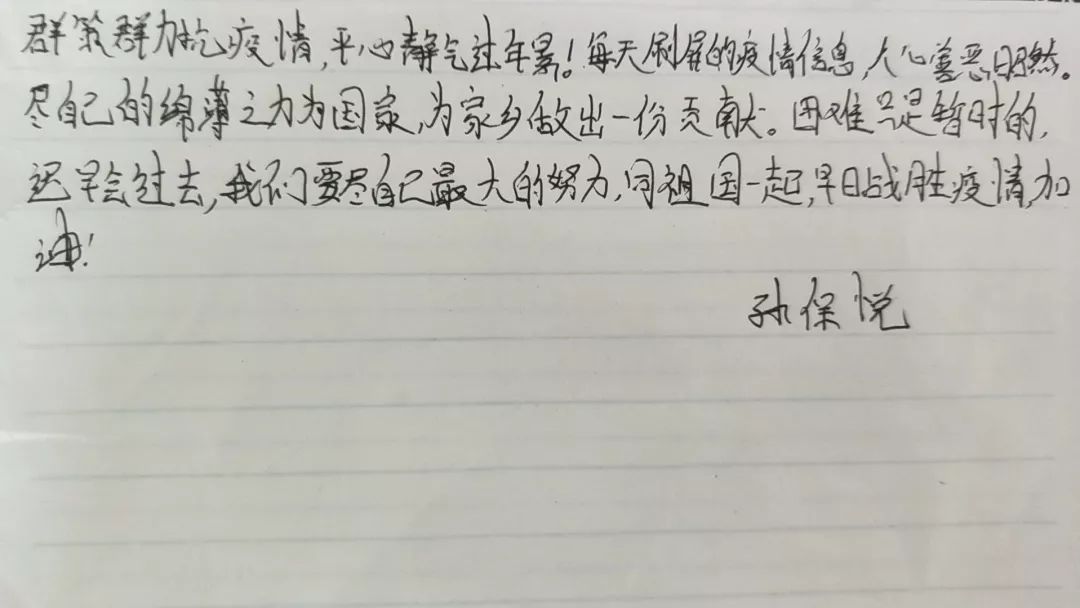 群策群力抗疫情，平心静气过年景！每天刷屏的疫情信息，人心善恶明然。
尽自己的绵薄之力为国家，为家乡做出一份贡献。困难只是暂时的，
迟早会过去，我们要尽自己最大的努力，同祖国一起，早日战胜疫情，加
油！
孙保悦